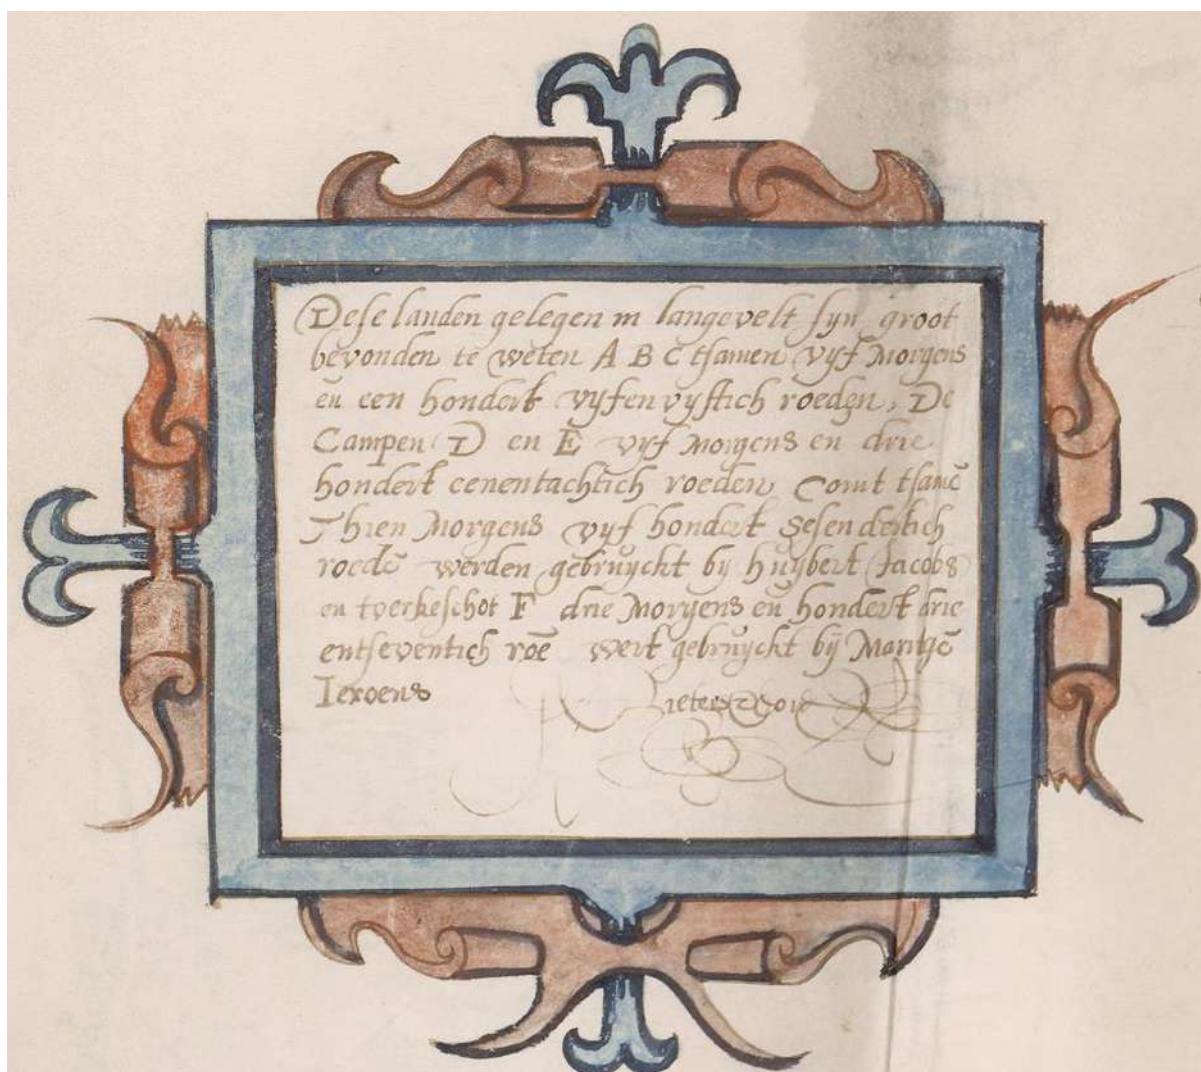 Dese landen gelegen in langevelt syn groot
bevonden te weten A B C tsamen vyf Morgens
eñ een hondert vyfenvyftich roeden, De
Campen D en E vyf Morgens en drie
hondert eenentachtich roeden Comt tsamē
Thien Morgens vyf hondert Sesendertich
roedē werden gebruyckt by huybert Jacobs
en tverkeschot F drie Morgens eñ hondert drie
entseventich roē wert gebruyckt bij Maritgē
Ieroens